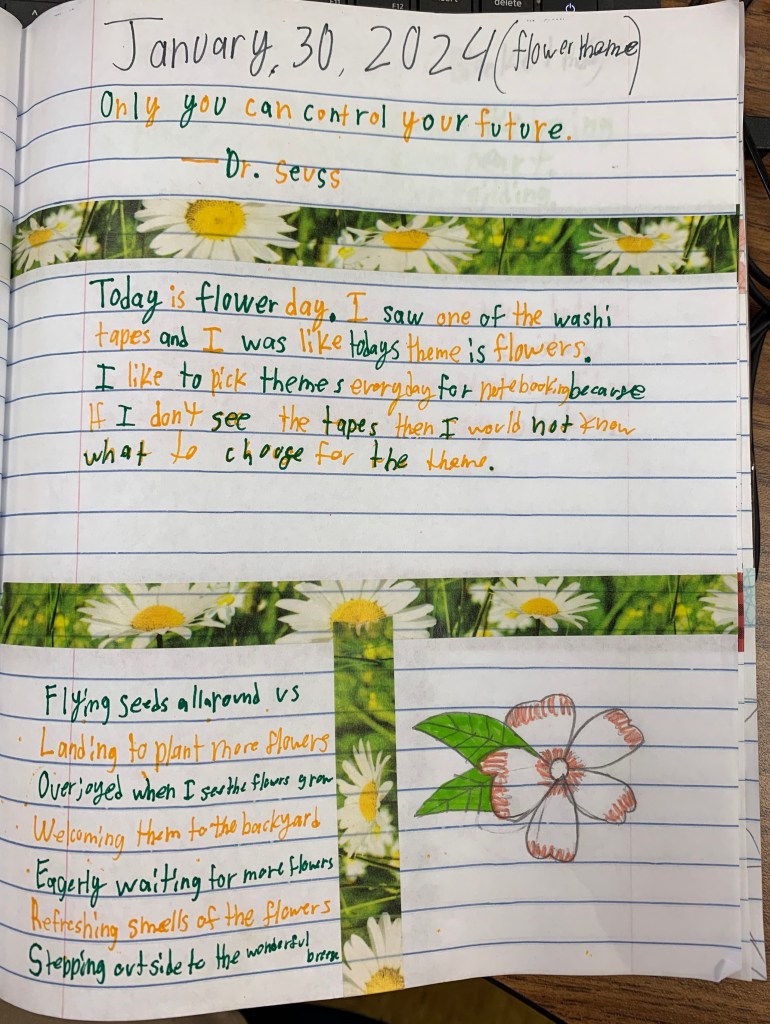 January, 30, 2024 (flower theme)
Only you can control your future.
— Dr. Seuss
Today is flower day. I saw one of the washi
tapes and I was like todays theme is flowers.
I like to pick themes everyday for notebooking because
If I don't see the tapes then I would not know
what to choose for the theme.
Flying seeds all around us
Landing to plant more flowers
Overjoyed when I see the flowers grow
Welcoming them to the backyard
Eagerly waiting for more flowers
Refreshing smells of the flowers
Stepping outside to the wonderful
breeze
F12
insert
delete